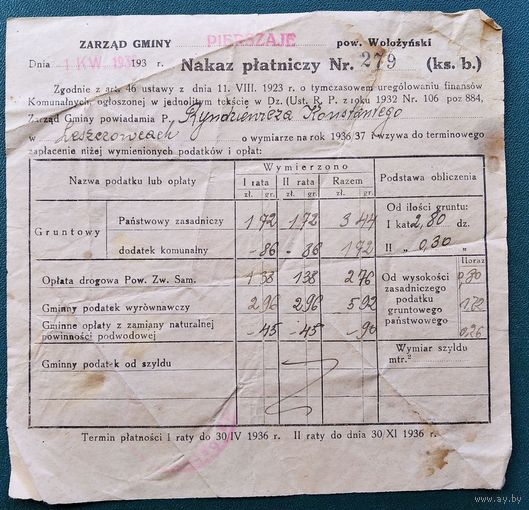 ZARZĄD GMINY PIERSZAJE pow. Wołożyński
Dnia 1 KW. 193 193 r. Nakaz płatniczy Nr. 279 (ks. b.)
Zgodnie z art. 46 ustawy z dnia 11. VIII. 1923 r. o tymczasowem urególowaniu finansów
Komunalnych, ogłoszonej w jednolitym tekście w Dz. (Ust. R. P. z roku 1932 Nr. 106 poz 884,
Zarząd Gminy powiadamia P. Konstantego
w o wymiarze na rok 1936/37 i wzywa do terminowego
zapłacenie niżej wymienionych podatków i opłat:
Nazwa podatku lub opłaty Wymierzono Podstawa obliczenia
I rata II rata Razem
zł. gr. zł. gr. zł. gr.
Gruntowy Państwowy zasadniczy 1 72 1 72 3 44
dodatek komunalny - 86 - 86 1 72
Od ilości gruntu:
I kat. 2,80 dz.
II „ 0,30 „
Opłata drogowa Pow. Zw. Sam. 1 38 1 38 2 76
Gminny podatek wyrównawczy 2 96 2 96 5 92
Gminne opłaty z zamiany naturalnej
powinności podwodowej - 45 - 45 - 90
Od wysokości
zasadniczego
podatku
gruntowego
państwowego
Iloraz
0,80
Gminny podatek od szyldu
Wymiar szyldu
mtr.²
Termin płatności I raty do 30/IV 1936 r. II raty do dnia 30/XI 1936 r.
www.ay.by